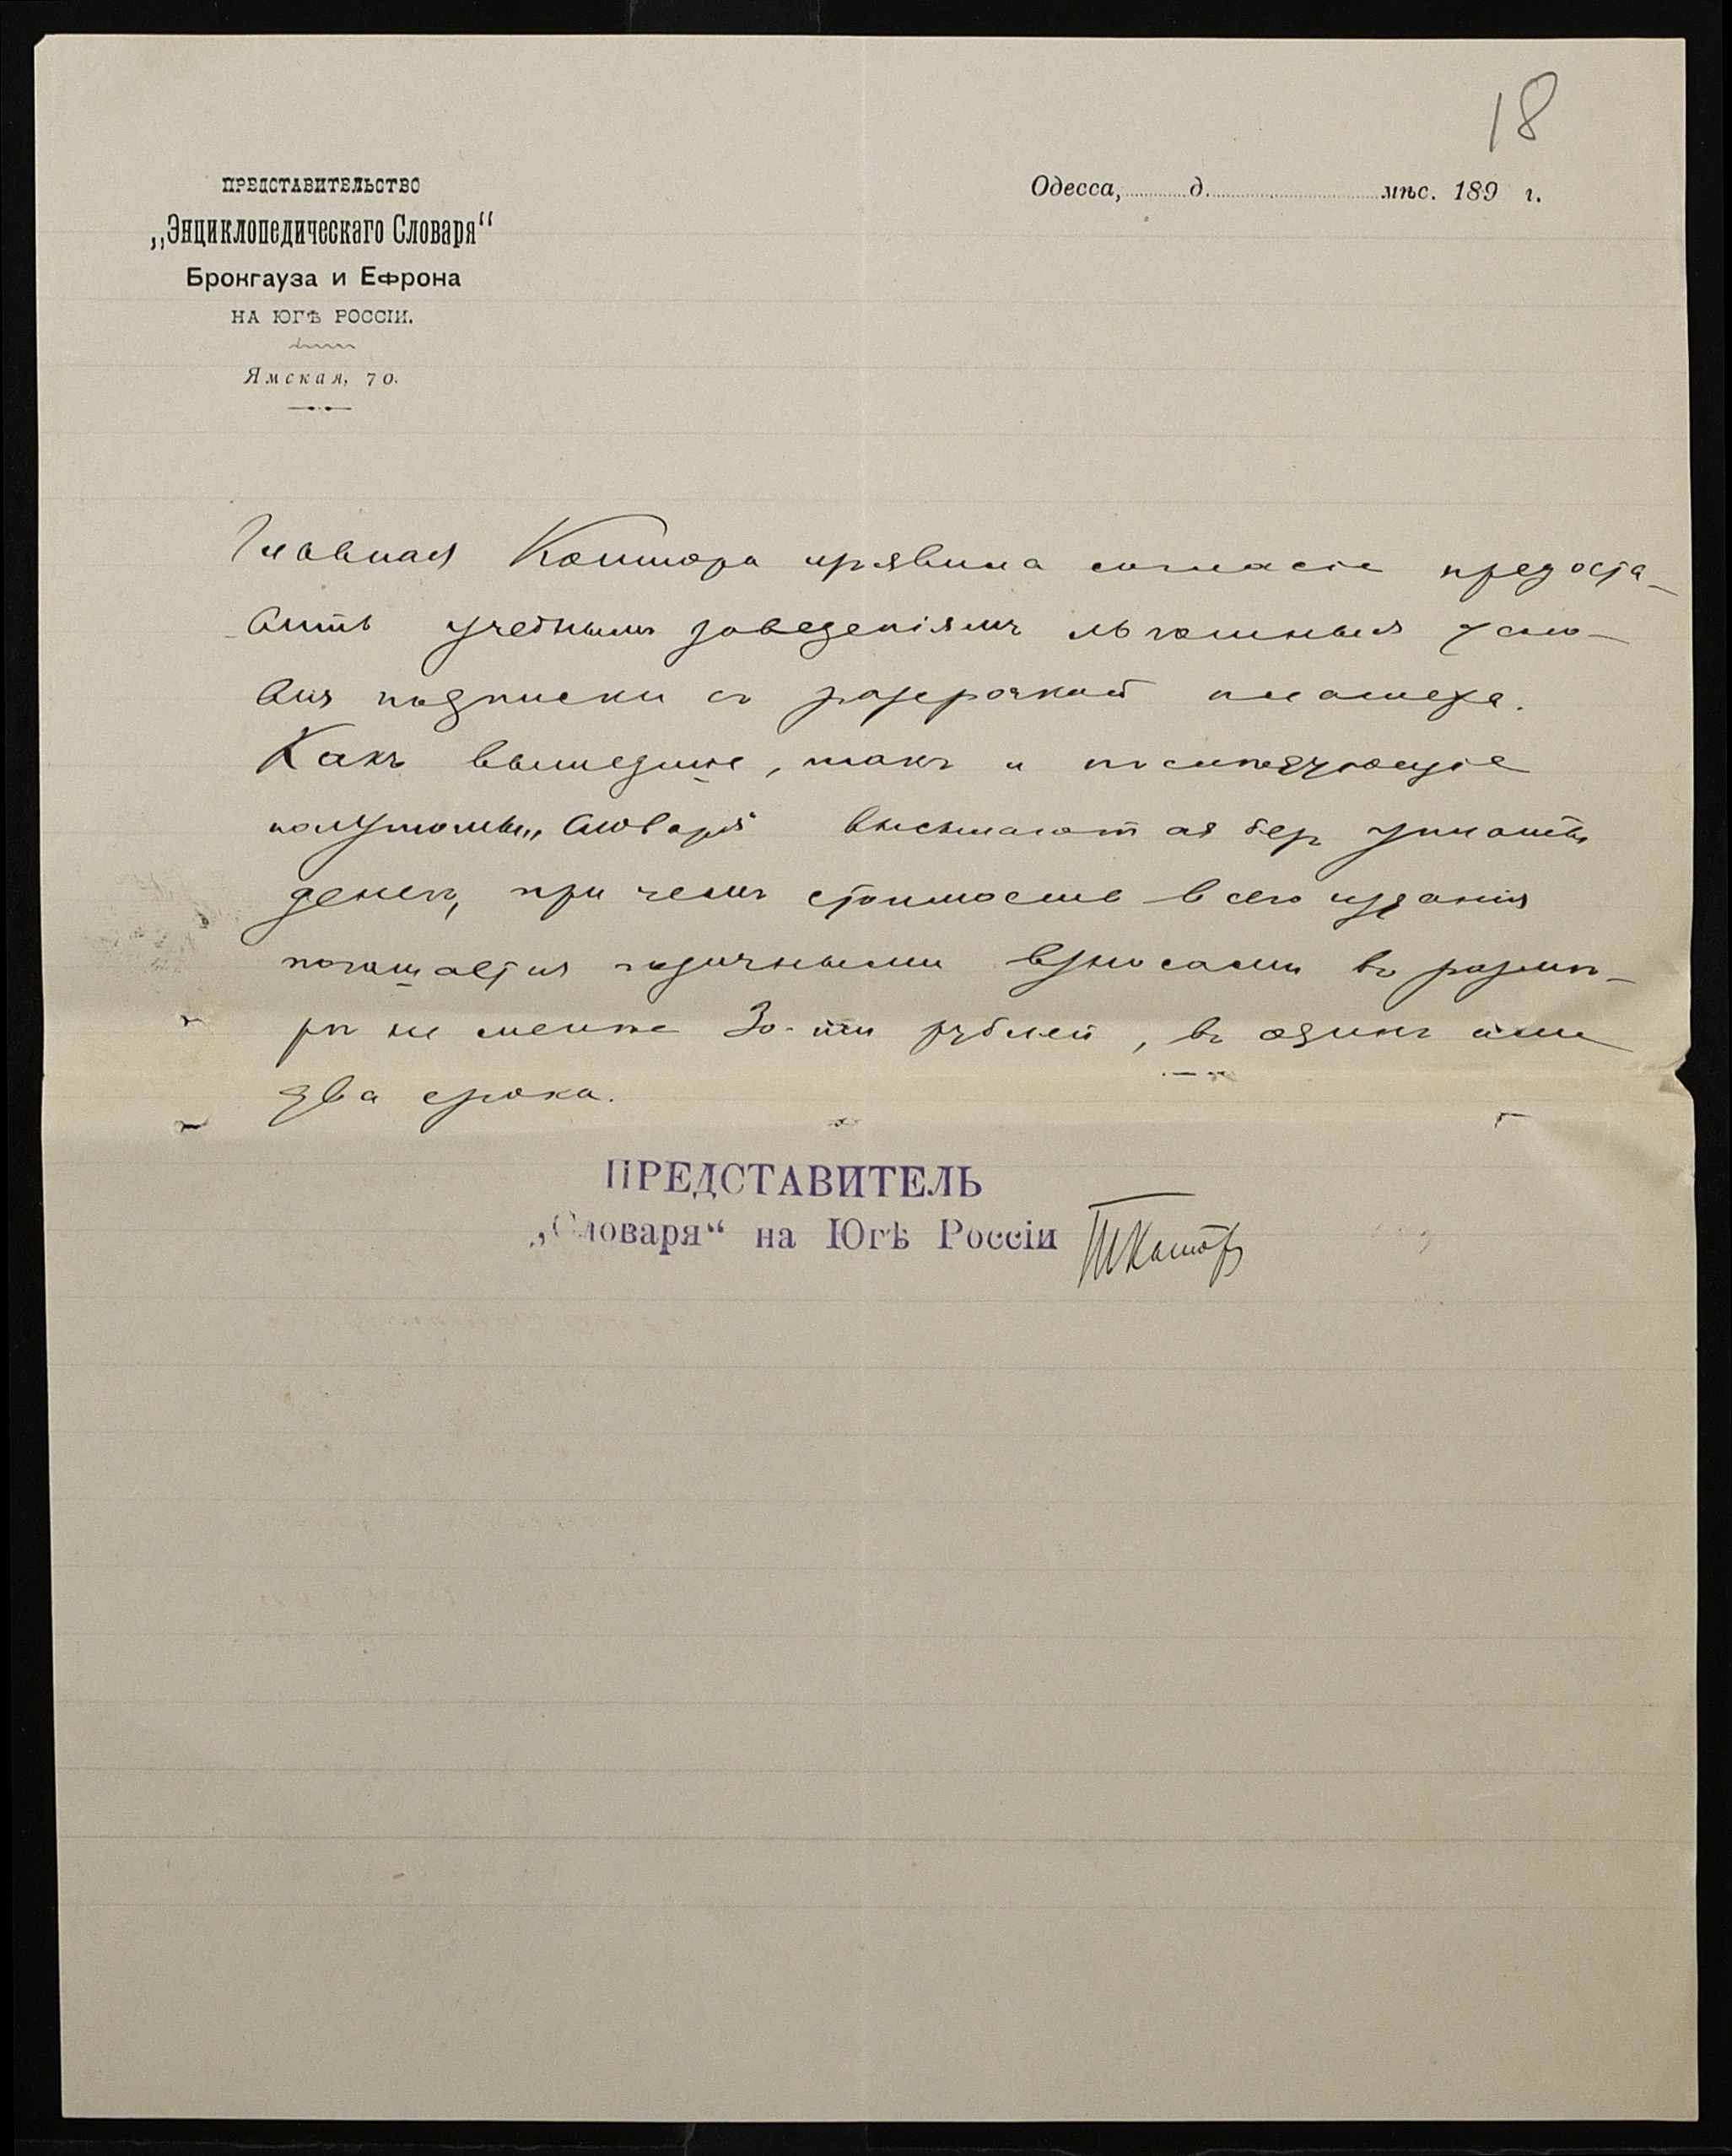 18
ПРЕДСТАВИТЕЛЬСТВО
„Энциклопедическаго Словаря“
Брокгауза и Ефрона
НА ЮГѢ РОССІИ.
Ямская, 70.
Одесса, д. мѣс. 189 г.
Главная Контора изъявила согласіе предоста-
вить учебнымъ заведеніямъ льготныя усло-
вія подписки съ разсрочкой платежа.
Какъ вышедшіе, такъ и послѣдующіе
полутомы „Словаря“ высылаются безъ уплаты
денегъ, при чемъ стоимость всего изданія
погашается годичными взносами въ размѣ-
рѣ не менѣе 30-ти рублей, въ одинъ или
два срока.
ПРЕДСТАВИТЕЛЬ
„Словаря“ на Югѣ Россіи